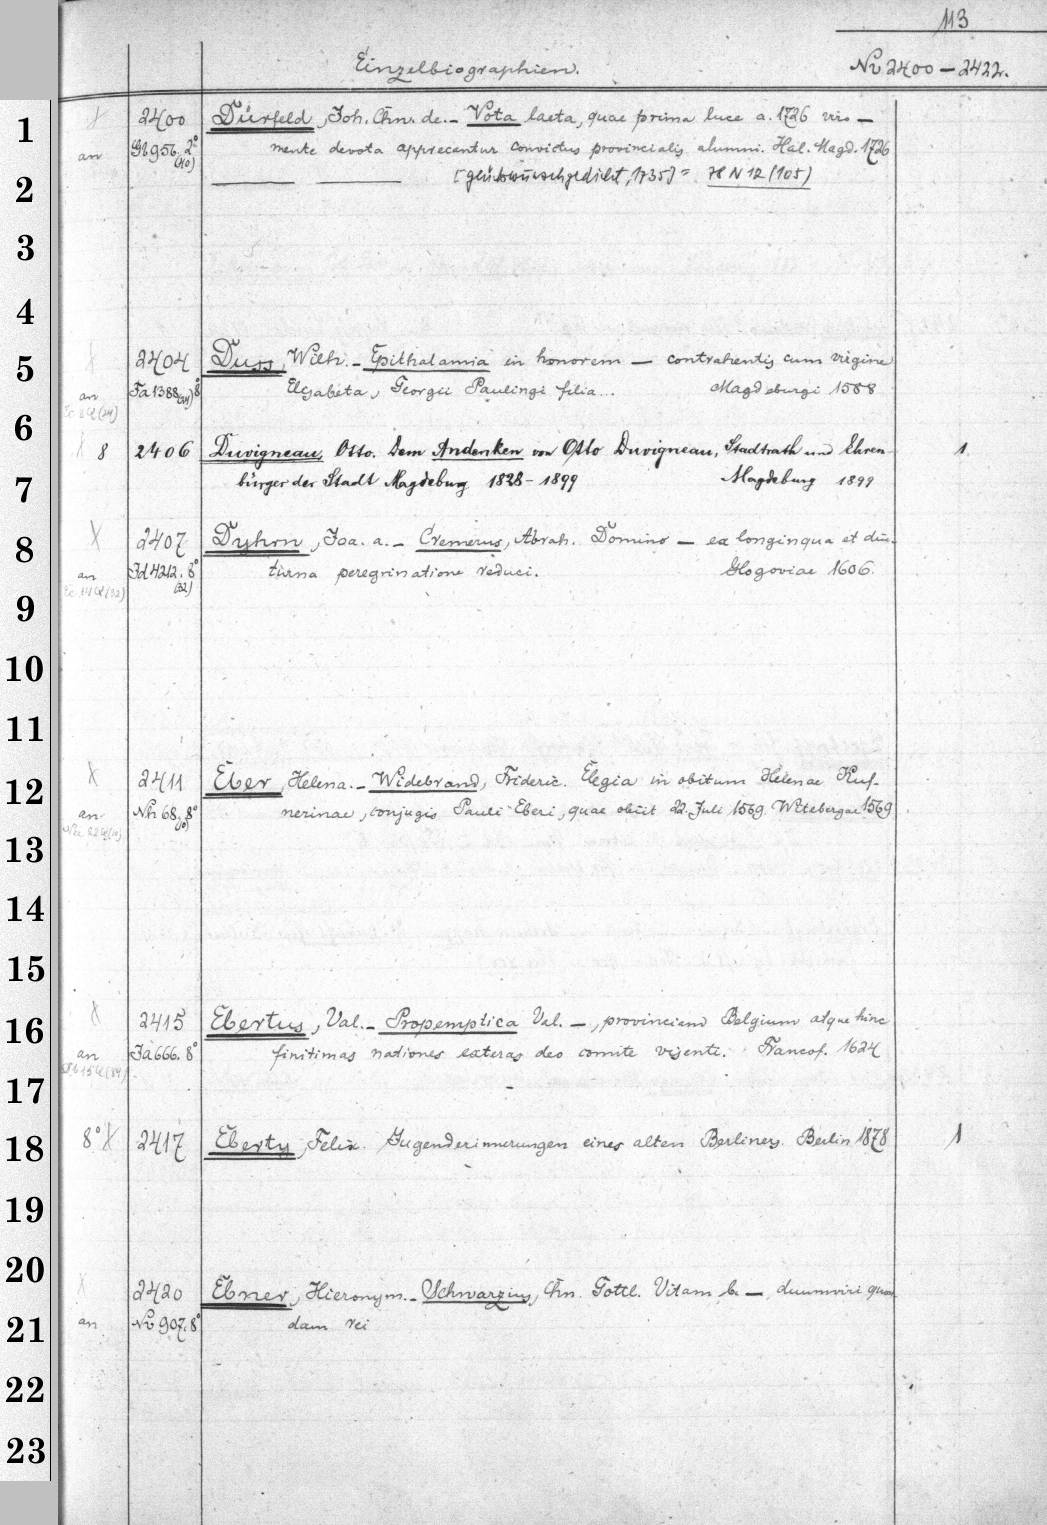 113
Einzelbiographien. No 2400 – 2422.
1 2400 Dürfeld, Joh. Chn. de. – Vota laeta, quae prima luce a. 1726 viro —
an Gb 956. 2° (10) mente devota apprecantur convictus provincialis alumni. Hal. Magd. 1726
2 [Glückwunschgedicht, 1735] = 78 N 12 (105)
3
4
5 2404 Duss, Wilh. – Epithalamia in honorem — contrahentis cum virgine
an Fa 1388 (24) 8° Elisabeta, Georgii Paulingi filia... Magdeburgi 1588
6
8 2406 Duvigneau, Otto. Dem Andenken von Otto Duvigneau, Stadtrath und Ehren- 1
7 bürger der Stadt Magdeburg 1828 – 1899 Magdeburg 1899
8 X 2407 Dyhrn, Joa. a. – Cremerus, Abrah. Domino — ex longinqua et diu-
an Fd 4212. 8° (32) turna peregrinatione reduci. Glogoviae 1606.
9
10
11
12 X 2411 Eber, Helena. – Widebrand, Frideric. Elegia in obitum Helenae Kuf-
an Nh 68. 8° nerinae, conjugis Pauli Eberi, quae obiit 22. Juli 1569. Witebergae 1569
13
14
15
16 X 2415 Ebertus, Val. – Propemptica Val. —, provinciam Belgium atque hinc
an Fa 666. 8° finitimas nationes exteras deo comite visenti. Francof. 1624
17
18 8° X 2417 Eberty, Felix. Jugenderinnerungen eines alten Berliners. Berlin 1878 1
19
20 2420 Ebner, Hieronym. – Schwarzius, Chn. Gottl. Vitam b. —, duumviri quon
21 an No 907. 8° dam rei
22
23